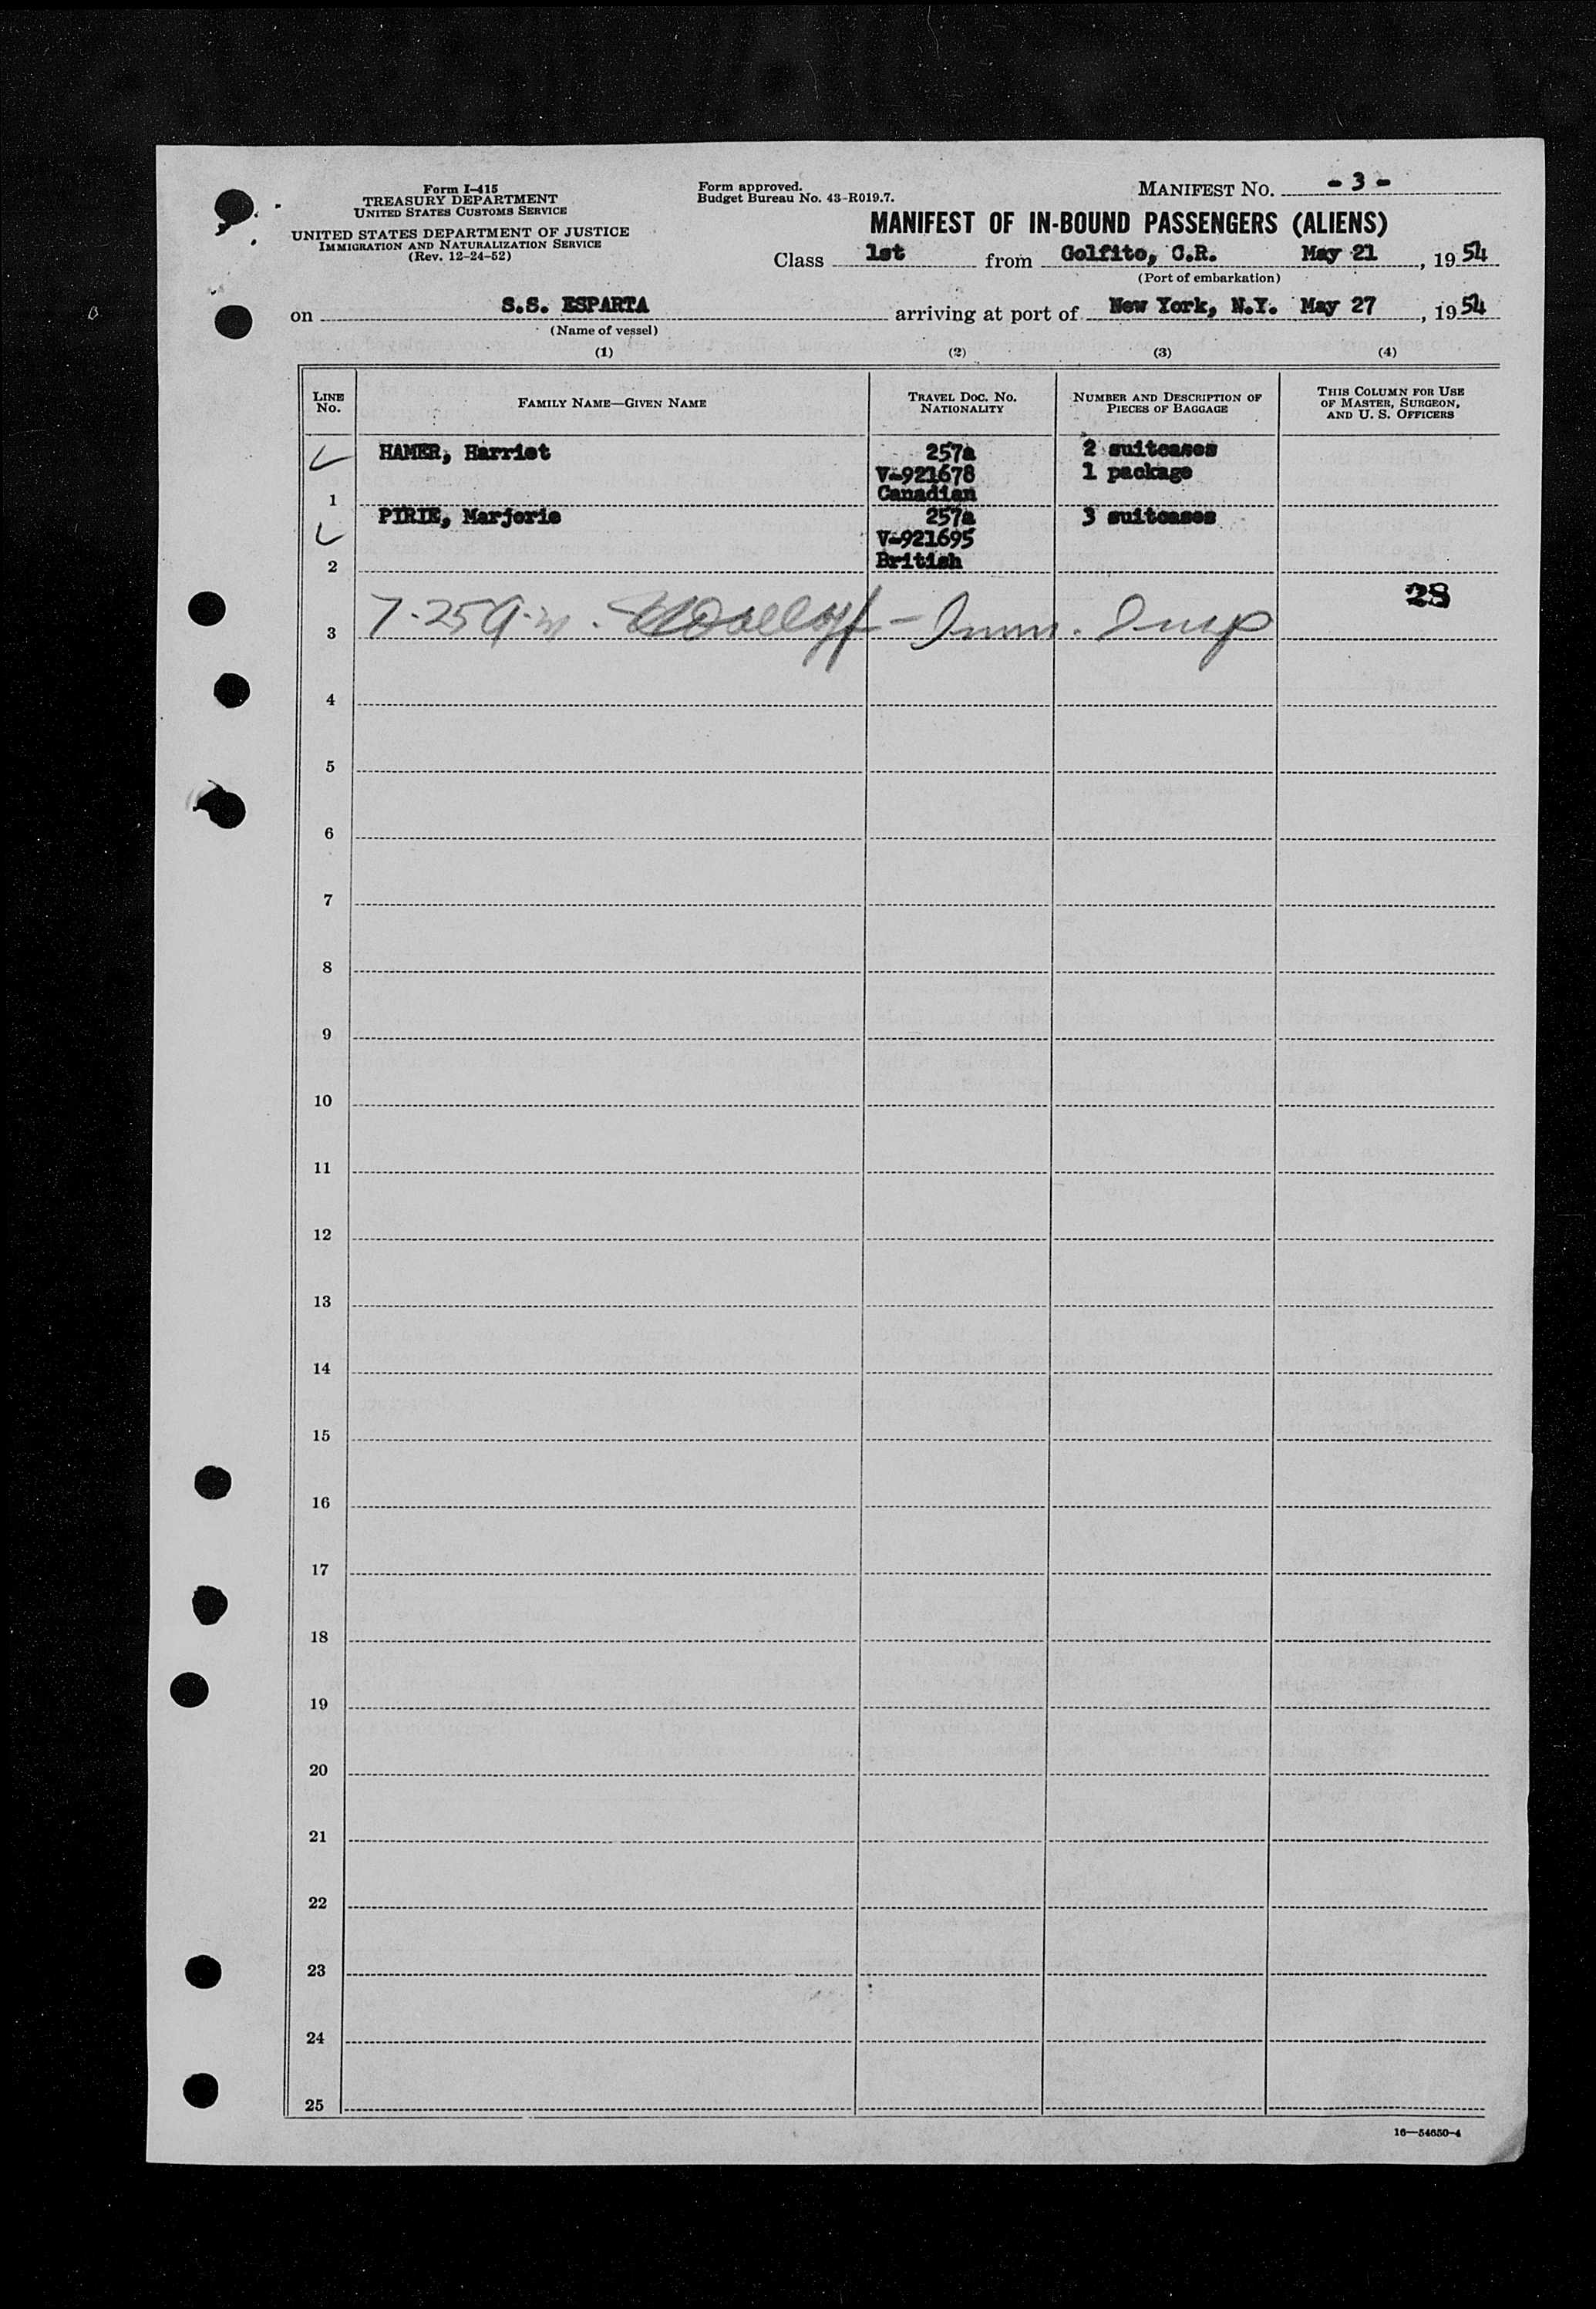 Form I-415
TREASURY DEPARTMENT
UNITED STATES CUSTOMS SERVICE
UNITED STATES DEPARTMENT OF JUSTICE
IMMIGRATION AND NATURALIZATION SERVICE
(Rev. 12-24-52)
Form approved.
Budget Bureau No. 43-R019.7.
MANIFEST NO. - 3 -
MANIFEST OF IN-BOUND PASSENGERS (ALIENS)
Class 1st from Golfito, C.R. May 21, 1954
(Port of embarkation)
on S.S. ESPARTA arriving at port of New York, N.Y. May 27, 1954
(Name of vessel)
(1) (2) (3) (4)
LINE NO. FAMILY NAME—GIVEN NAME TRAVEL DOC. NO. NATIONALITY NUMBER AND DESCRIPTION OF PIECES OF BAGGAGE THIS COLUMN FOR USE OF MASTER, SURGEON, AND U. S. OFFICERS
HAMER, Harriet 257a 2 suitcases
V-921678 1 package
1 Canadian
PIRIE, Marjorie 257a 3 suitcases
V-921695
2 British
28
3 7.25 a.m. - Imm. Insp
4
5
6
7
8
9
10
11
12
13
14
15
16
17
18
19
20
21
22
23
24
25
16—54650-4